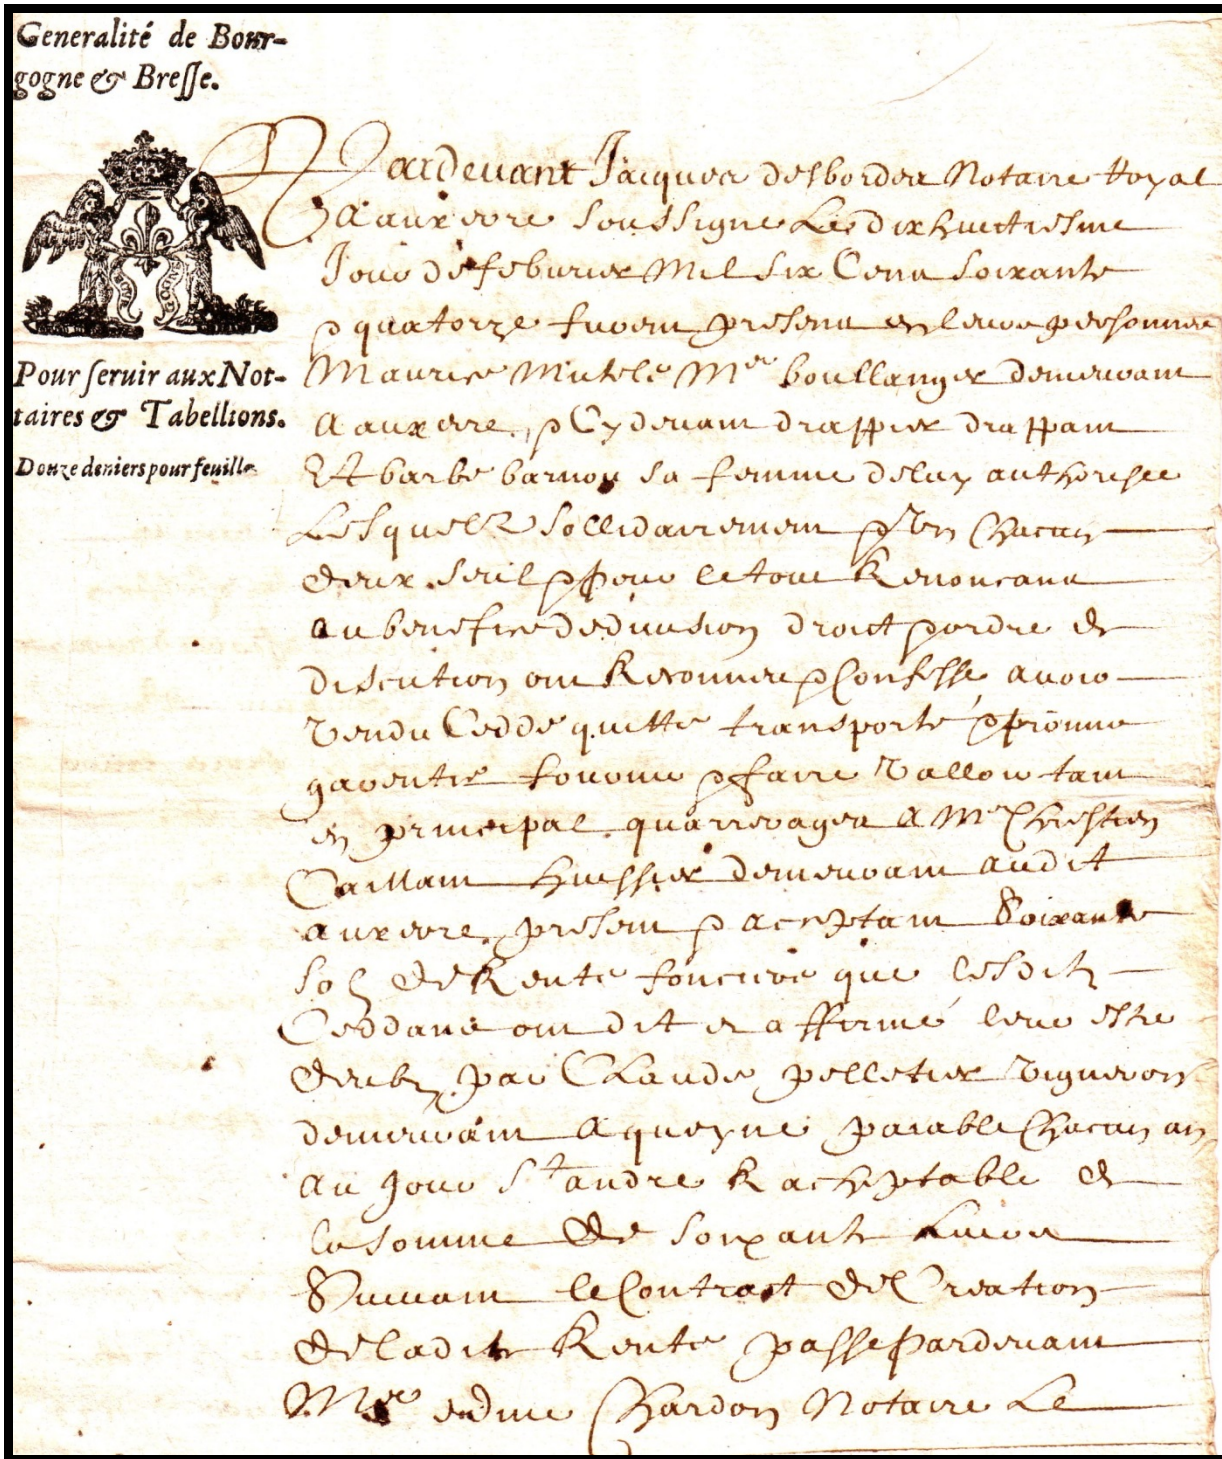 Generalité de Bour-
gogne & Bresse.
Pour servir aux Not-
taires & Tabellions.
Douze deniers pour feuille
Pardevant Jacques desbordes Notaire Royal
a auxerre soussigné Le dix huictiesme
Jour de febvrier Mil six Cens soixante
& quatorze furent presens en leurs personnes
Maurice Mutelé Me boullanger demeurant
a auxerre, & Cy devant drappier drappant
Et barbe sa femme de luy authorisée
Lesquelz sollidairement & Un Chacun
d'eux seul & pour le tout Renonceans
au benefice de division droict & ordre de
discution ont Reconnu & Confessé avoir
Vendu Ceddé quitté transporté & promis
garentir fournir & faire Valloir tant
en principal qu'arrerages a Me Chrestien
Caillant huissier demeurant audit
auxerre, present & aceptant Soixante
solz de Rente fonciere que lesditz
Ceddans ont dit et affirmé leur estre
deubz par Claude pelletier Vigneron
demeurant a queyne paiable Chacun an
au Jour St andre Racheptable de
la somme de soixante Livres
Suivant le Contract de Creation
de ladite Rente passé pardevant
Me edme Chardon Notaire Le